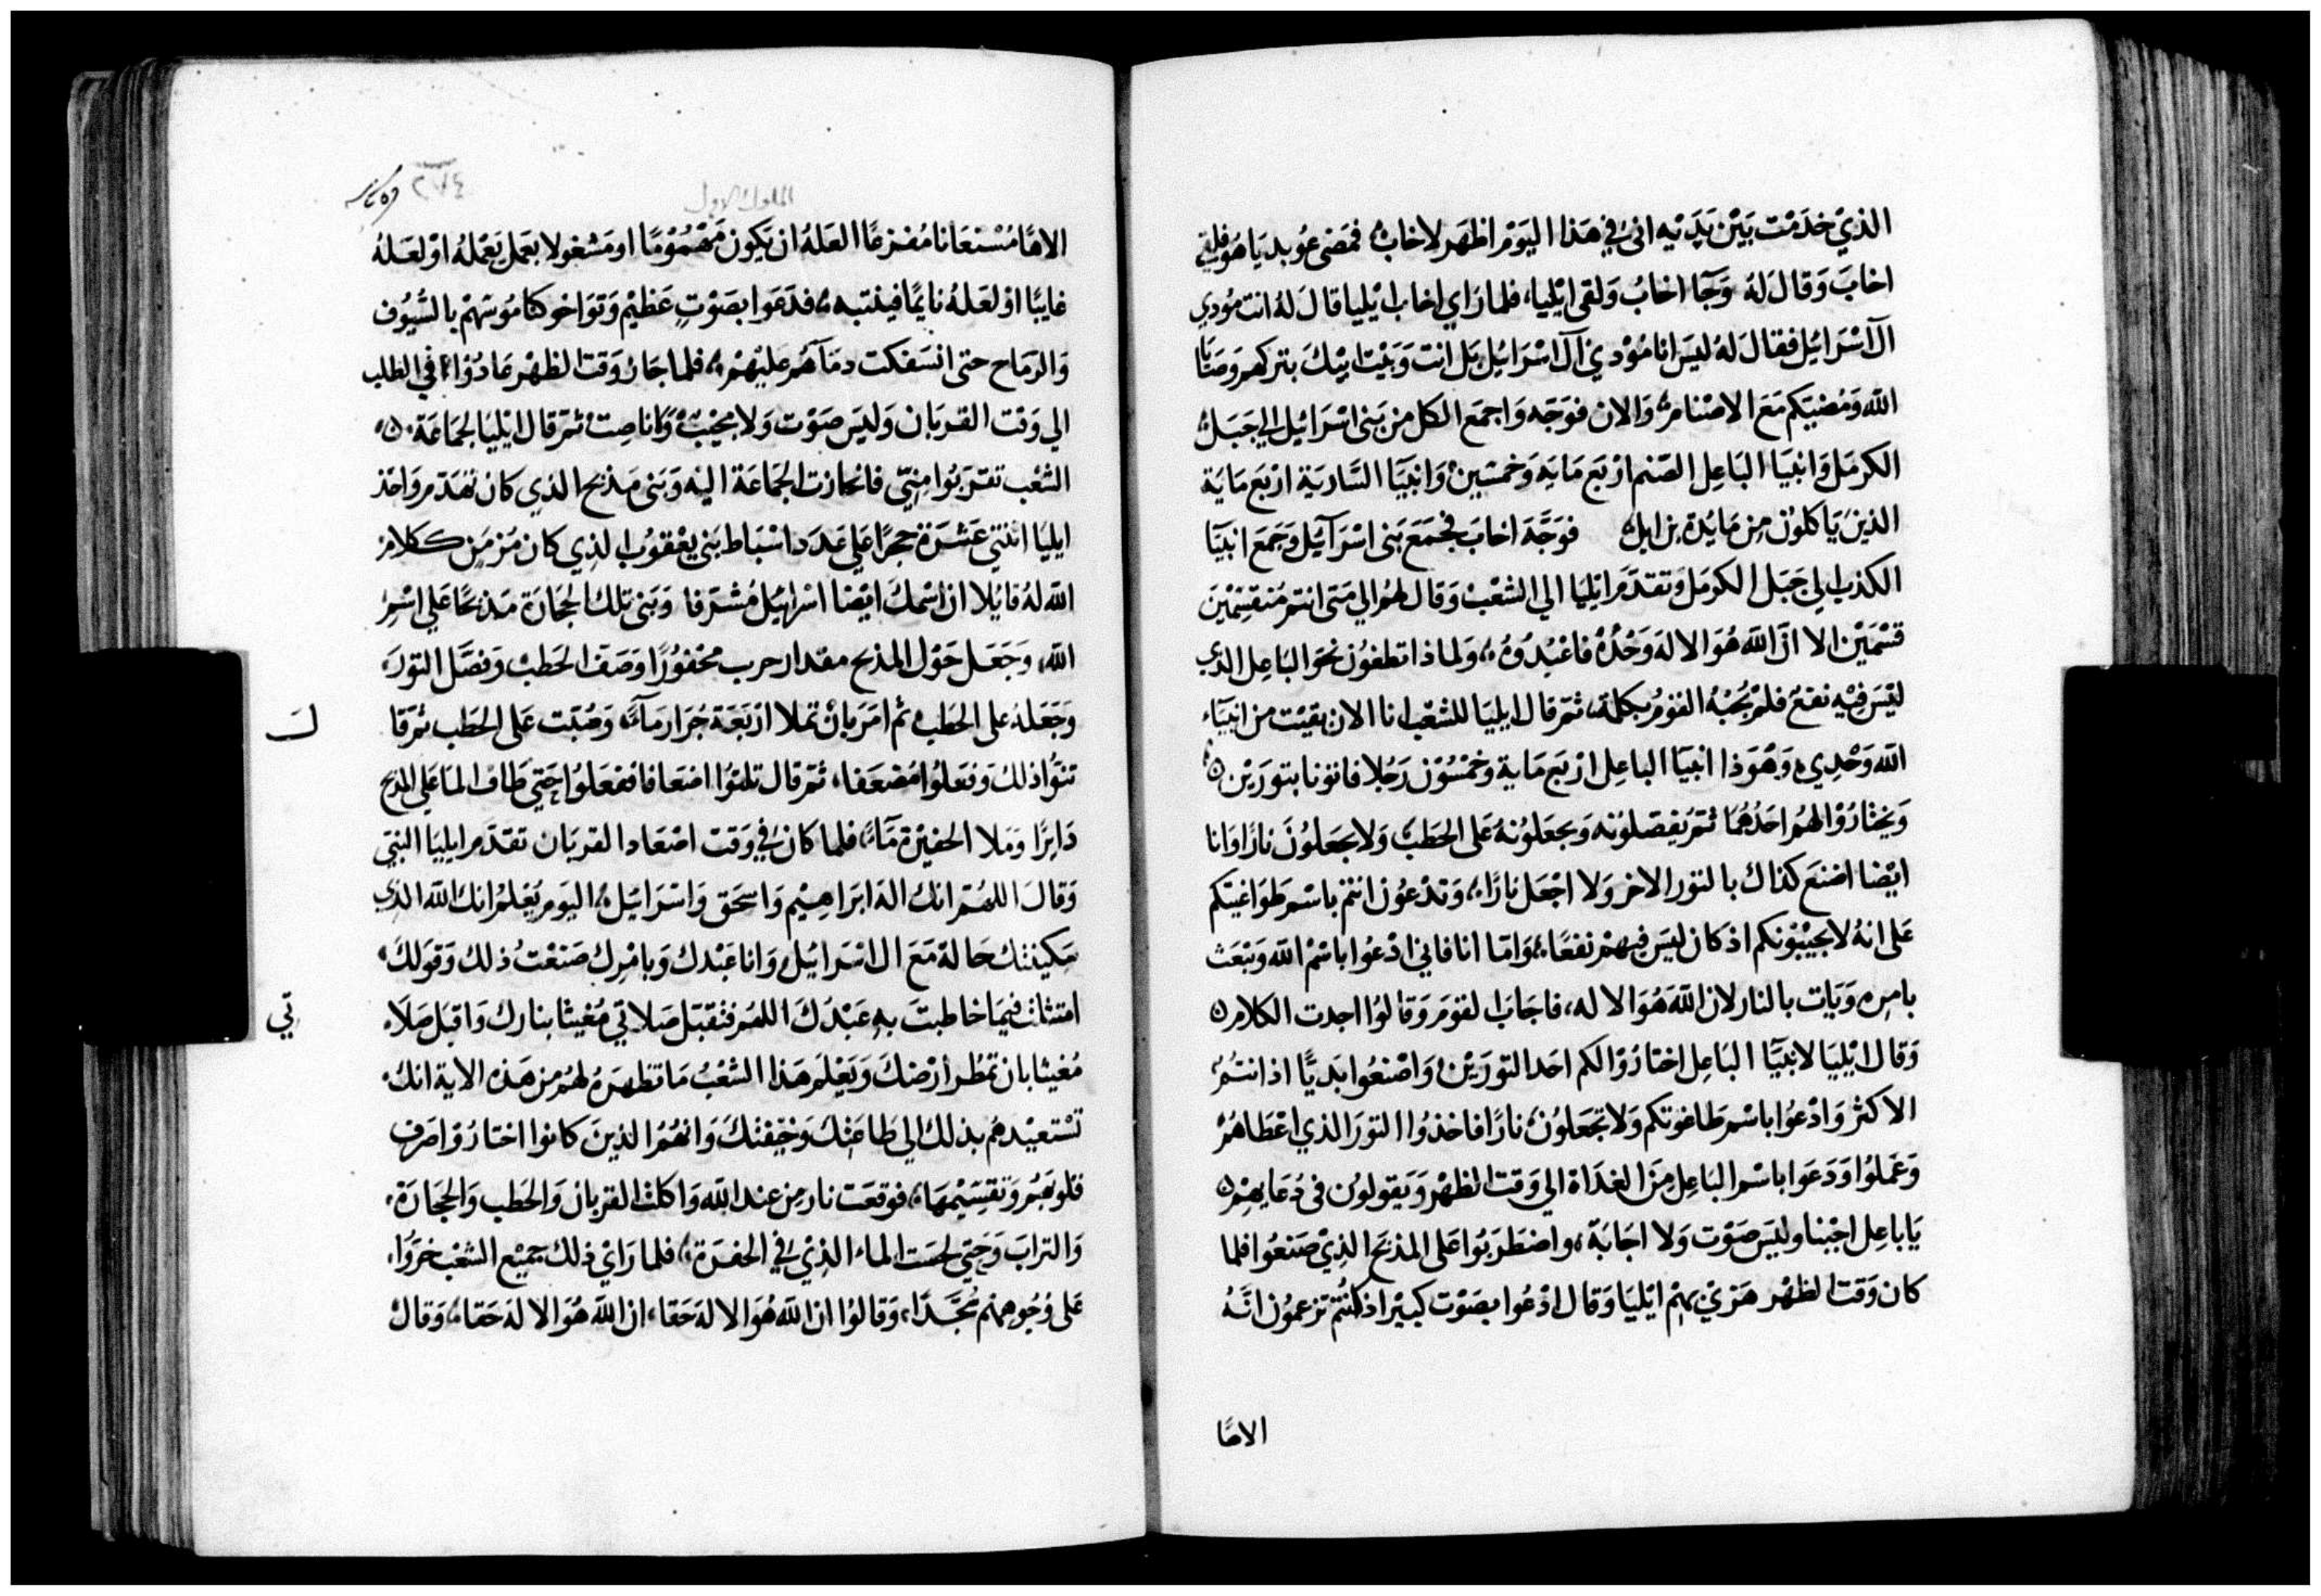 الذيْ خدَمْت بَيْن يَدَيْه انىْ في هَذا اليَوْم اظهَر لاخابْ فمَضى عُوبديَا هُو فلقى
اخابَ وَقالَ لهُ وَجَآ اخابُ وَلقى ايْليا، فلما رَاي اخاب ايْليا قالَ لهُ انت مُودي
ال آسْرَائيل فقالَ لهُ ليسَ انا مُوْدي آل اسْرَائيل بَل انت وَبَيْت ابيْكَ بتركهم وَصَايَا
الله وَمُضيَكم مَعَ الاصْنام وَالان فوَجّه وَاجمَع الكل من بَنى اسْرَائيل الي جَبَل
الكرمَل وَانبيَا البَاعِل الصّنم ارْبَع مَايَه وَخمسْيْن وَانبيَا السَّاريَة ارْبَع مايَة
الذينَ يَاكلوْن مِن مَايُدة يزابل فوَجَّهَ اخابَ فجمَعَ بَنى اسْرَآئيل وَجمَعَ انبيَآ
الكذب الي جَبَل الكرمَل وَتقدَّم ايْليَا الي الشعْب وَقال لهُم الي مَتى انتم مُنقسِمْيْن
قسْمَيْن الا انَّ الله هُوَ الالهَ وَحْدُهُ فاعْبُدُوهُ، وَلماذا تطغوُن نحوَ البَاعِل الدي
ليْسَ فِيْهِ نفعٌ فلمْ يُجْبْهُ القوْمُ بكلمة، ثمّ قال ايليَا للشعْب انا الان بقيْت من انبيَآء
الله وَحْدِي وَهُوَذا انبيَآ الباعِل ارْبَع مَاية وَخمْسُوْن رَجُلا فاتونا بتورَيْن
وَيختارُوْا لهُم احَدُهُمَا ثمّ يَفصلوُنه وَيجعَلوُنهُ عَلى الحَطب وَلا يجعَلوُنَ نارًا وَانا
ايْضا اصْنعَ كذاك بالتوْر الاخر وَلا اجْعَل نارًا، وَتدْعُوْن انتم باسْم طوَاغيْتكم
عَلى انهُ لا يجيْبُوْنكم اذ كان ليسَ فيهِمْ نفعًا، وَامّا انا فاني ادْعُوا باسْم الله وَيَبْعَث
بامرِه وَيَاْت بالنار لان الله هُوَ الاله، فاجَابَ القوْمَ وَقالوُا اجدت الكلام
وَقال ايْليَا لانبيَآ البَاعِل اختارُوْا لكم احَد التورَيْن وَاصْنعُوا بَديًّا اذ انتمْ
الاكثر وَادْعُوا باسْم طاغوتكم وَلا تجعَلوُن نارًا فاخذوُا التورَ الذي اعْطاهُمْ
وَعَملوُا وَدَعَوا باسْم البَاعِل مَن الغدَاة الي وَقت الظهْر وَيَقولوُن في دُعَايهم
يَا باعِل اجْبْنا وليسَ صَوْت وَلا اجَابَة، وَاضطرَبوُا عَلى المذبَح الذيْ صَنعُوا فلما
كان وَقت الظهْر هَزيْ بهِم ايْليَا وَقال ادْعُوا بصَوْت كبيْر اذ كنتُمْ تزعموُن انّهُ
الاهًا
٢٧٤
الملوك الاول
الاهًا مُسْتعَانا مُفزعًا العَلهُ ان يَكون مَهْمُوْمًا او مَشغولا بعَمل يَعْمْلهُ اوْ لعَلهُ
غايبًا اوْ لعَلهُ نايمًا فينتبه، فدَعَوا بصَوْتٍ عَظيْم وَتوَاخوَ كنامُوسَهُمْ بالسُّيوُف
وَالرمَاح حتى انسَفكت دمَآهُم عليْهمْ، فلما جَازَ وَقت الظهْر عَادُوْا في الطلب
الي وَقت القربَان وَليسَ صَوْت وَلا مجيْبٌ وَانا صِتْ ثم قال ايْليَا لجمَاعَة
الشعْب تقرّبوُا مِنيّ فانحازت الجمَاعَة اليْه وَبَنى مَذبح الذي كان تهَدّم وَاخذ
ايليَا اثنتي عَشْرَة حجرًا عَلى عَدَد اسْبَاط بَنى يعْقوُب الذِي كان مَزمَن كلام
الله لهُ قايْلا ان اسْمكَ ايْضا اسْرَائيْل مُشْرَفا وَبَنى تلكَ الحجَارَة مَذبحًا عَلى اسْم
الله، وَجَعَل حَوْل المذبح مقدار حرب محْفوُرًا وَصَفّ الحَطبْ وَفصَّل التورَ
وَجَعَلهُ على الحَطب ثم امَرَ بانْ تملا ارْبَعَة جُرَار مَآءً وَصُبّت عَلى الحَطب ثم قا
لَ
تنوُّا ذلكَ وَفعَلوُا مُضعَفا، ثمّ قال تلتوُا اضعَافا ففعَلوُا حَتي طافَ الما عَلى المذبح
دَايرًا وَملا الحفيْرة مَآءً، فلما كان في وَقت اصْعَاد القربَان تقدّم ايليَا النبيّ
وَقالَ اللهُمّ انك اله ابرَاهِيْم وَاسحَق وَاسْرَائيْل اليَوم يَعْلمُ انك الله الذي
سَكينتك حَالة مَعَ ال اسْرَائيْل وَانا عَبْدك وَبامْرِك صَنعْتُ ذلك وَقوَلكَ
امتثلت فيمَا خاطبتَ بهِ عَبْدَكَ اللهُم فتقبّل صَلاتي مُغيثا بنارك وَاقبَل صَلا
تي
مُغيثا بان تمطر ارْضكَ وَيَعْلمَ هَذا الشعْبُ مَا تظهرَهُ لهُم من هَذه الاية انك
تسْتعيْدهُم بذلك الي طاعَتكَ وَخيْفتكَ وَانهُم الذينَ كانوا اختارُوْا صَرف
قلوبهُم وَتقسِيْمهَا، فوقعَت نار مِن عند الله وَاكلت القربَان وَالحَطب وَالحجَارَة
وَالترابَ وَحَتي لحسَت الماء الذِيْ في الحفرَة، فلما رَايْ ذلك جميْع الشعْب خرّوُا
عَلى وُجُوههِم سُجَّدًا، وَقالوُا ان الله هُوَ الالهَ حَقا، ان الله هُوَ الالهَ حَقا، وَقالَ